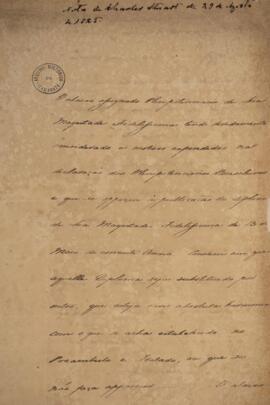 Nota de Charles Stuart de 29 de Agosto
de 1825
O abaixo assignado Plenipotenciario de Sua
Magestade Fidelissima tendo devidamente
considerado os motivos expendidos na
declaração dos Plenipotenciarios Brasileiros
e que se oppoem à publicação do diploma
de Sua Magestade Fidelissima de 13 de
Maio do corrente Anno
aquelle Diploma seja substituido por
outro, que esteja em absoluta harmonia
com o que se acha estabelecido no
Preambulo e Tratado, em que se
não faça O abaixo